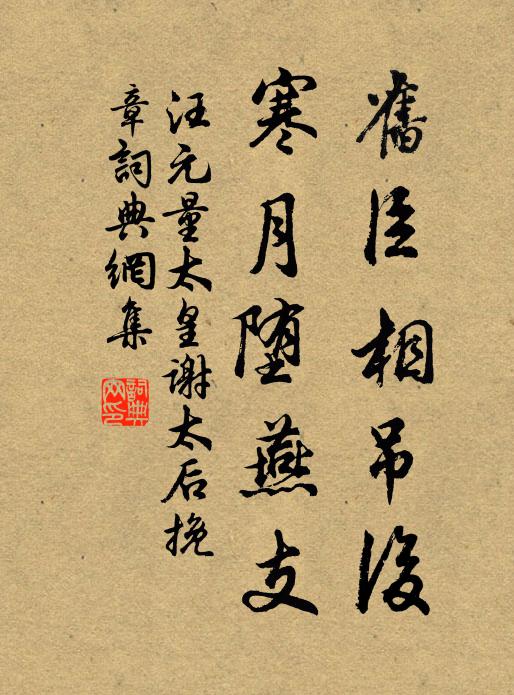 舊臣相吊後
寒月堕燕支
汪元量太皇谢太后挽
章詞典網集
詞典